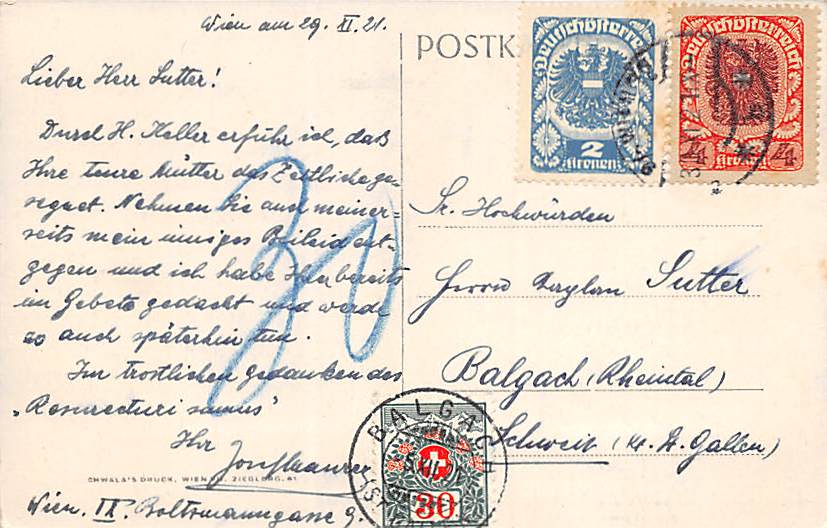 Wien am 29. XI. 21.
Lieber Herr Sutter!
Durch H. Keller erfuhr ich, daß
Ihre teure Mutter das Zeitliche ge-
segnet. Nehmen Sie auch meiner-
seits mein inniges Beileid ent-
gegen und ich habe Ihrer bereits
im Gebete gedacht und werde
es auch späterhin tun.
Im trostlichen Gedanken des
„Resurrecturi sumus"
Ihr
Wien. IX. Boltzmanngasse 9.
CHWALA'S DRUCK, WIEN VII. ZIEGLERG. 61
30
POSTK
Deutschösterreich
2
Kronen
Deutschösterreich
4 Kronen 4
Sr. Hochwürden
Herrn Sutter
Balgach (Rheintal)
Schweiz (Kt. St. Gallen)
BALGACH
30